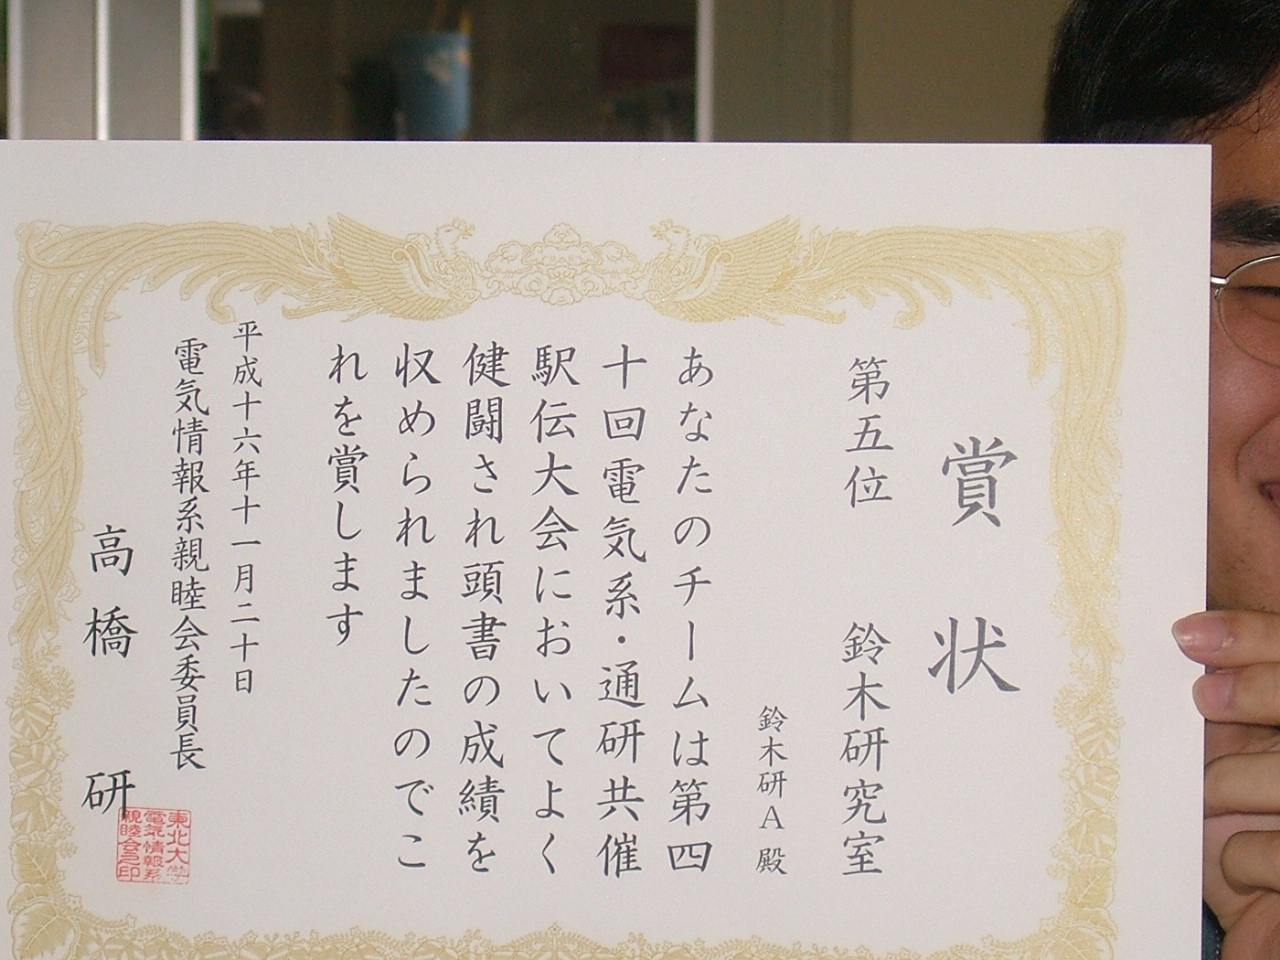 賞状
第五位　鈴木研究室
鈴木研A 殿
あなたのチームは第四
十回電気系・通研共催
駅伝大会においてよく
健闘され頭書の成績を
収められましたのでこ
れを賞します
平成十六年十一月二十日
電気情報系親睦会委員長
高橋 研
東北大学
電気情報系
親睦会之印